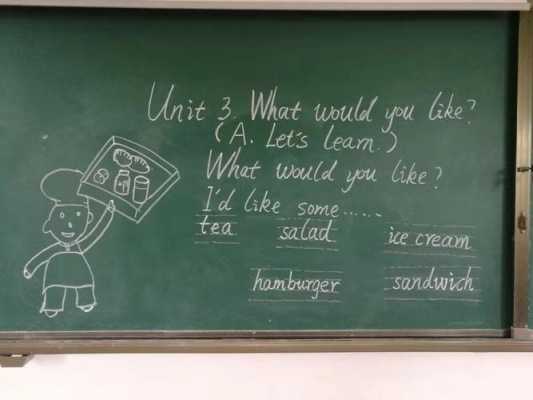 Unit 3. What would you like?
(A. Let's learn.)
What would you like?
I'd like some......
tea salad ice cream
hamburger sandwich